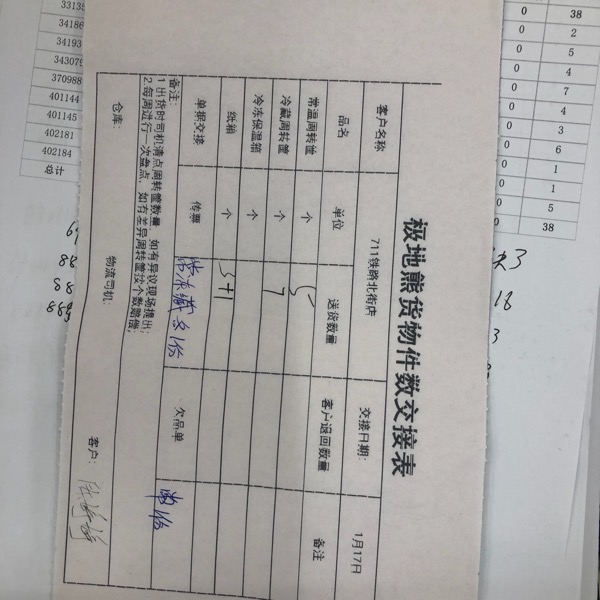 极地熊货物件数交接表
客户名称 711铁路北街店 交接日期: 1月17日
品名 单位 送货数量 客户退回数量 备注
常温周转筐 个 5
冷藏周转筐 个 7
冷冻保温箱 个
纸箱 个 3+1
单据交接 传票 欠品单
备注:
1.出货时司机清点周转筐数量,如有异议现场提出;
2.每周进行一次盘点,如有差异周转筐按个数赔偿;
仓库: 物流司机: 客户:
34193
370988
401144
401145
402181
402184
总计
0 38
2
0 5
0 4
0 7
0 4
0 3
0 6
0 1
0 1
0 5
0 38
18
3
88
88
889